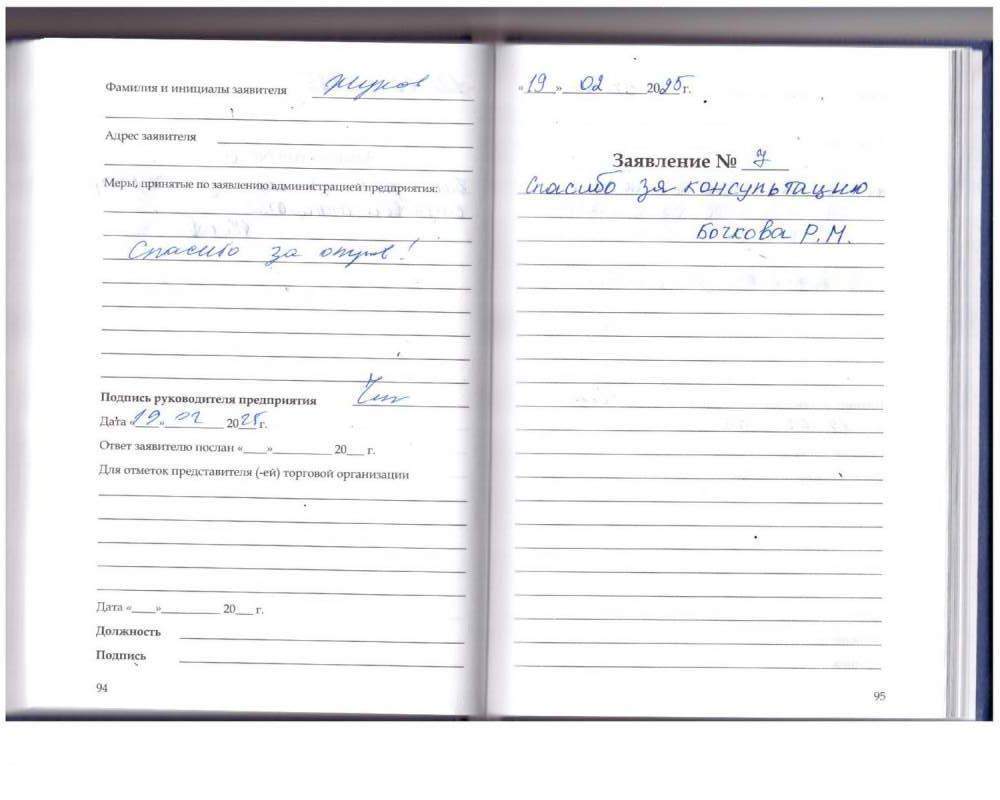 Фамилия и инициалы заявителя Жуков
Адрес заявителя
Меры, принятые по заявлению администрацией предприятия:
Спасибо за отзыв!
Подпись руководителя предприятия
Дата «19» 02 2025 г.
Ответ заявителю послан «____»__________ 20___ г.
Для отметок представителя (-ей) торговой организации
Дата «____»__________ 20___ г.
Должность
Подпись
94
«19» 02 2025 г.
Заявление № 7
Спасибо за консультацию
Бочкова Р.М.
95